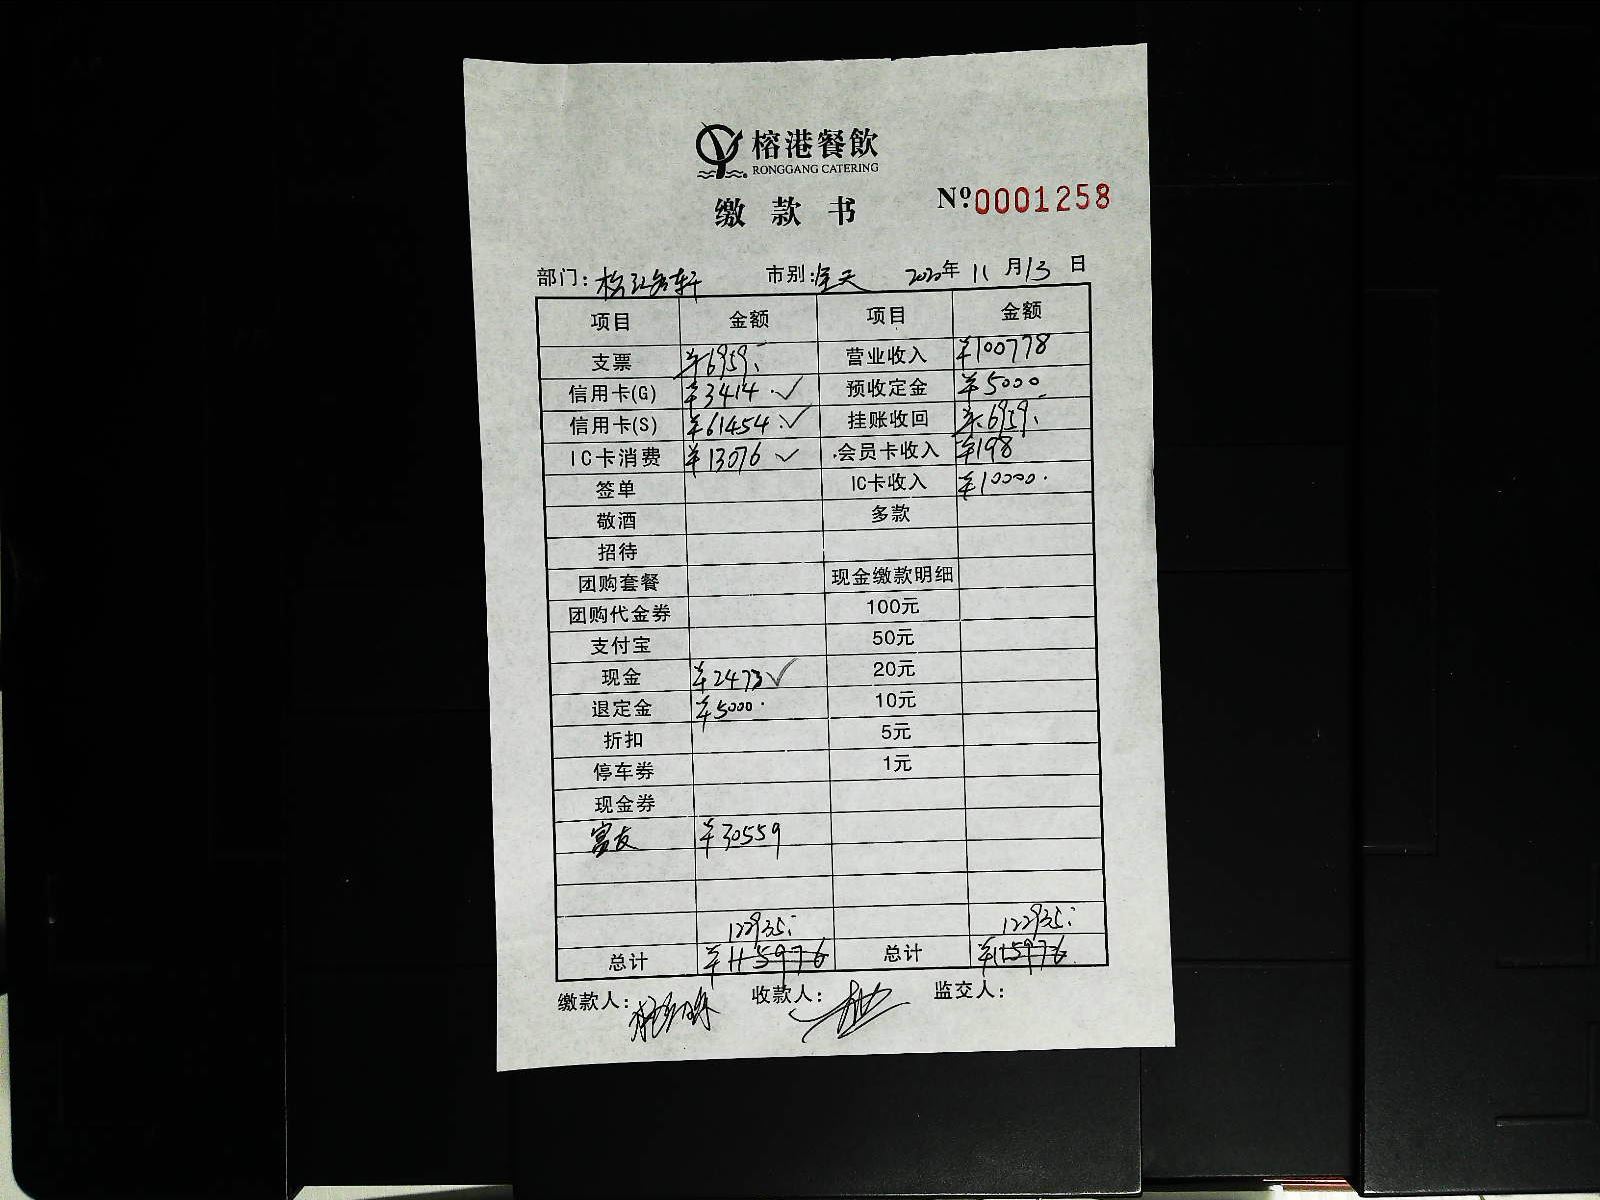 榕港餐飲
RONGGANG CATERING
缴款书
Nº:0001258
部门: 市别:全天 2020年11月13日
项目 金额 项目 金额
支票 ¥6959.- 营业收入 ¥100778
信用卡(G) ¥3414.✓ 预收定金 ¥5000
信用卡(S) ¥61454.✓ 挂账收回 ¥6959.-
IC卡消费 ¥13076 ✓ 会员卡收入 ¥198
签单 IC卡收入 ¥10000.
敬酒 多款
招待
团购套餐 现金缴款明细
团购代金券 100元
支付宝 50元
现金 ¥2473✓ 20元
退定金 ¥5000. 10元
折扣 5元
停车券 1元
现金券
富友 ¥30559
122935.- 122935.-
总计 ¥115976 总计 ¥115976.
缴款人: 收款人: 监交人: